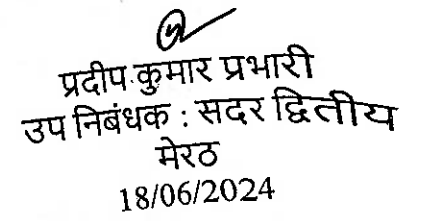 प्रदीप कुमार प्रभारी
उप निबंधक : सदर द्वितीय
मेरठ
18/06/2024